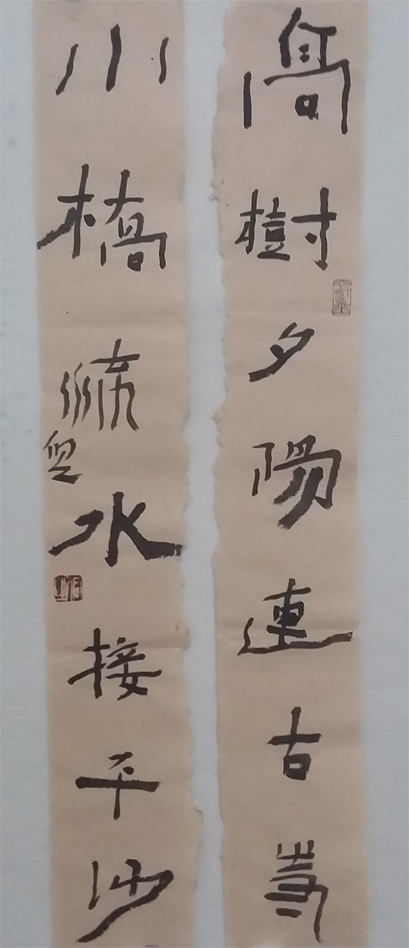 高樹夕陽連古巷
小橋流水接平沙